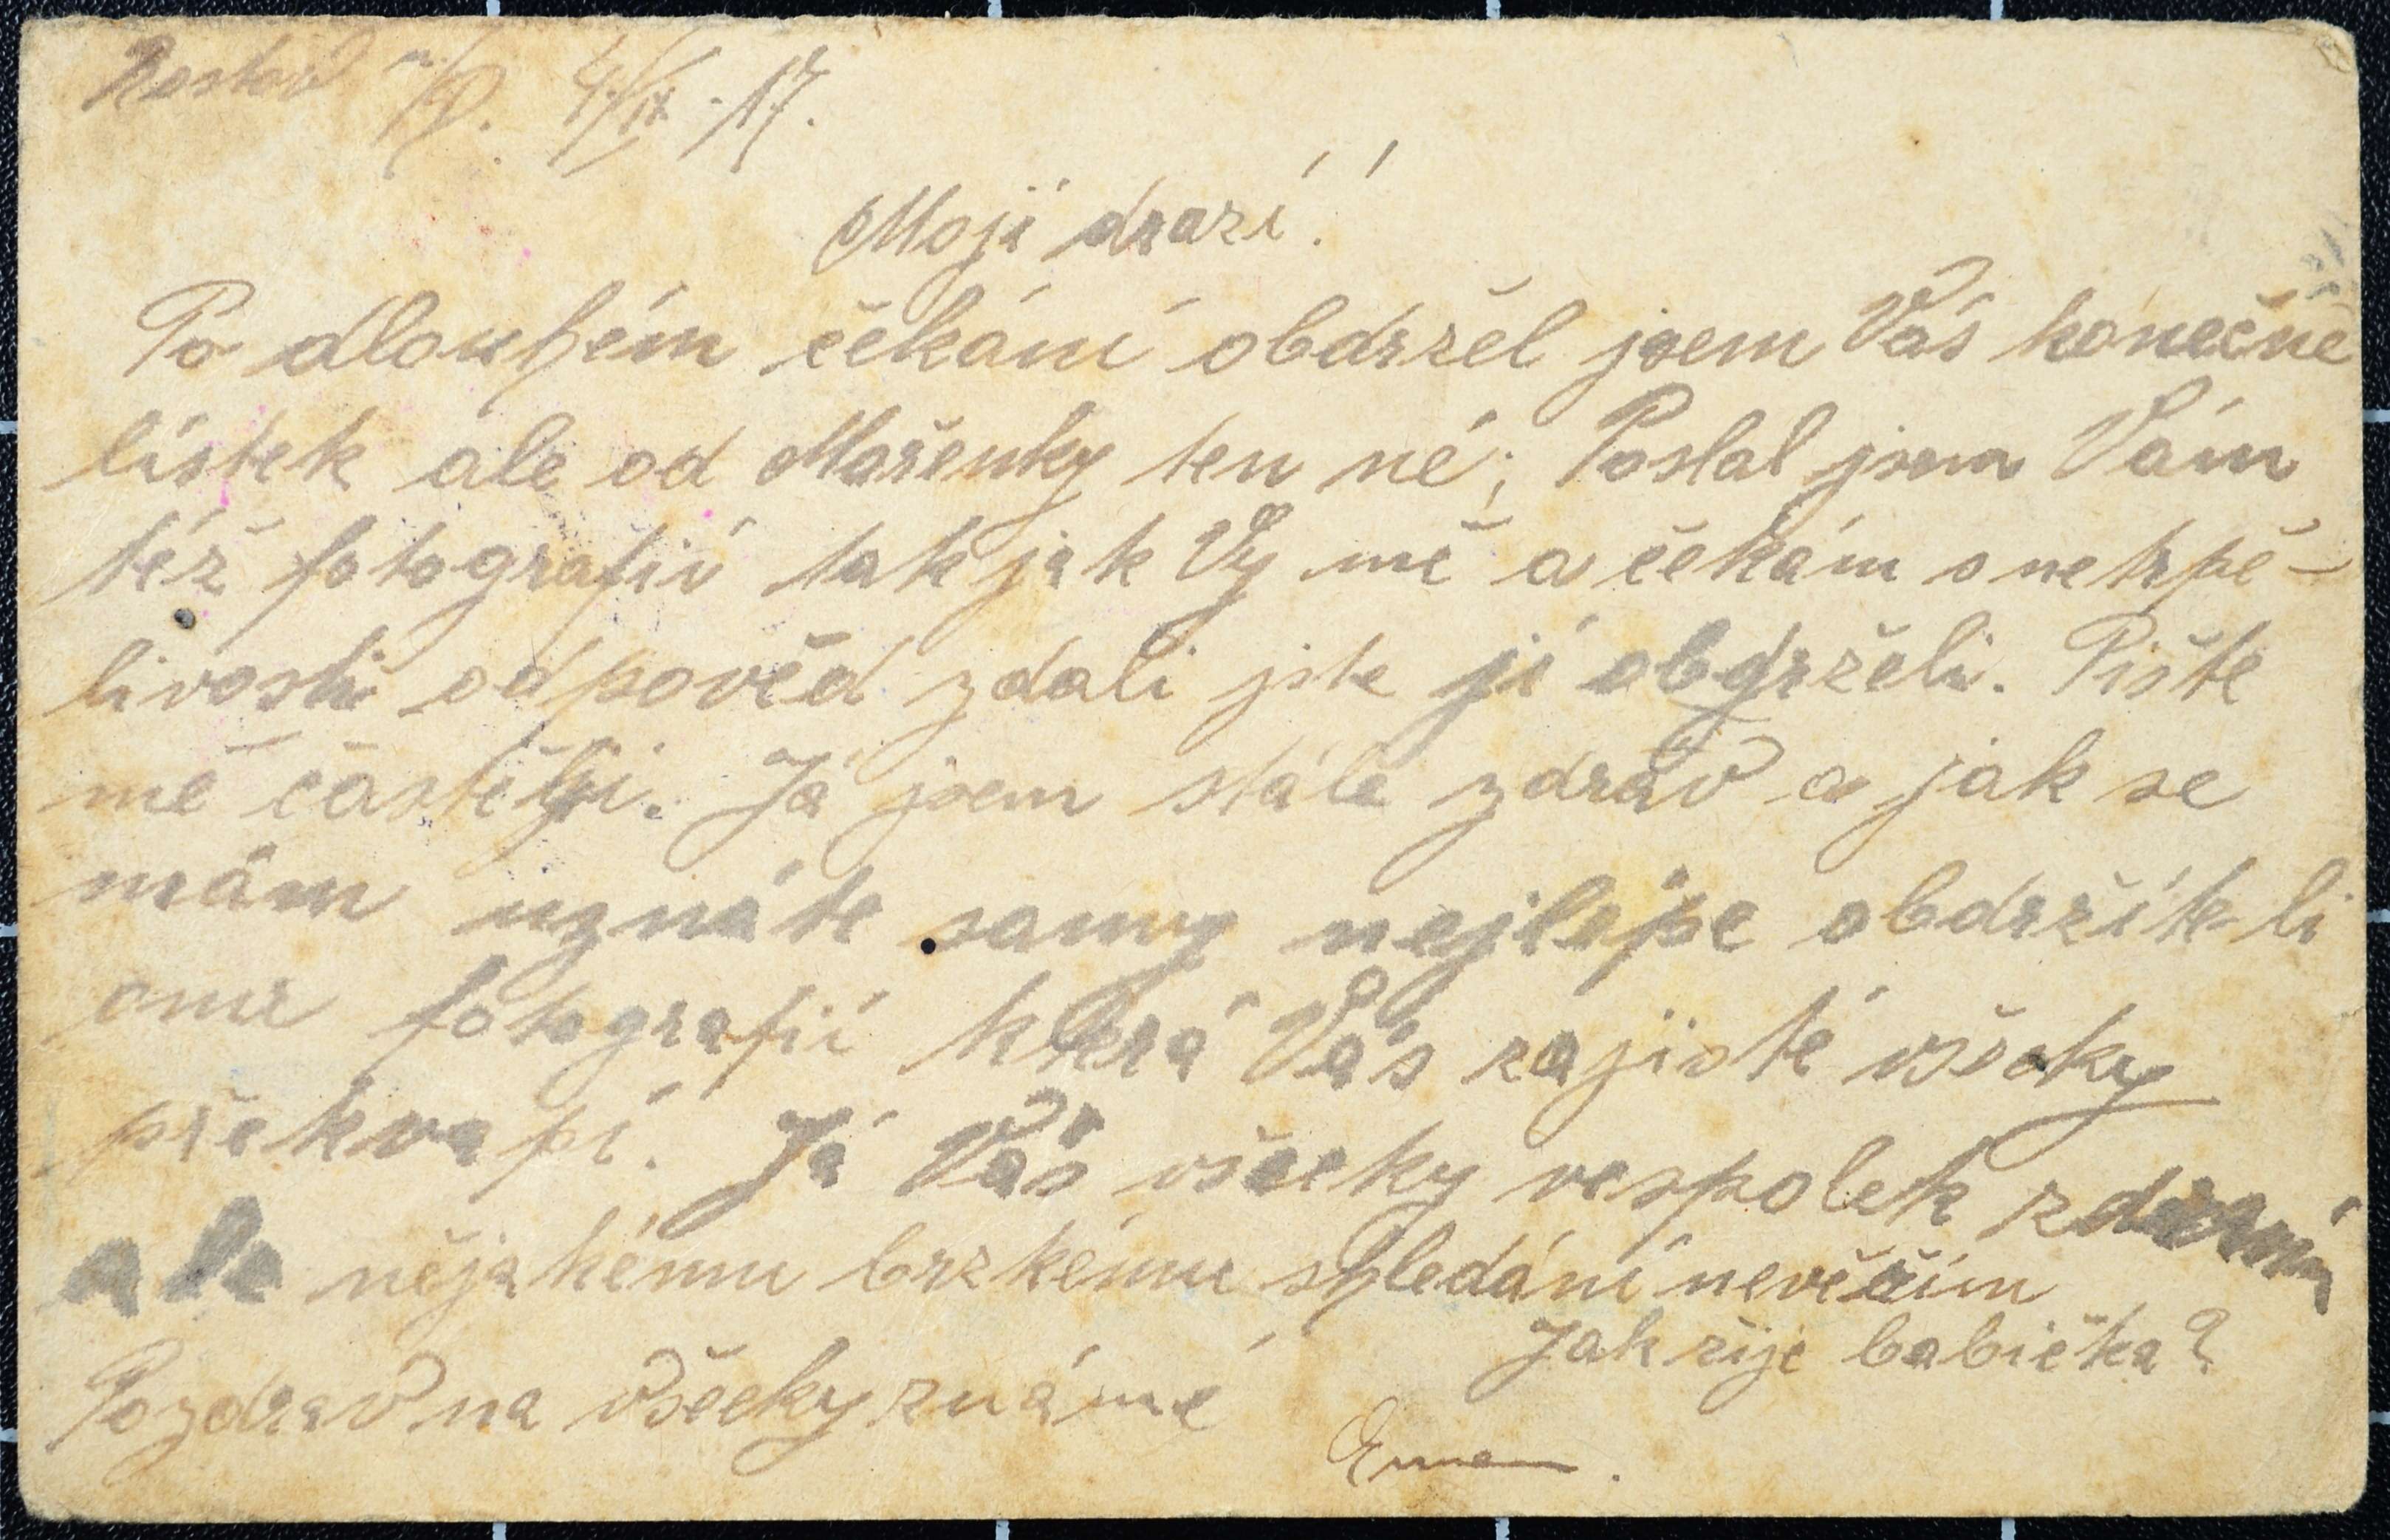 Rostov n/D. 4/IX - 17.
Moji drazí!
Po dlouhém čekání obdržel jsem Váš konečně
lístek ale od Mařenky ten né; Poslal jsem Vám
též fotografií tak jak Vy mě a čekám s netrpě-
livosti odpověd zdali jste ji obdrželi. Pište
mě častěji. Já jsem stále zdráv a jak se
mám uznáte samy nejlépe obdržíte-li
onu fotografií která Vás zajisté všecky
překvapí. Já Vás všecky vespolek
ale nějakému brzkému shledání nevěřím
Jak žije babička?
Pozdrav na všecky známé